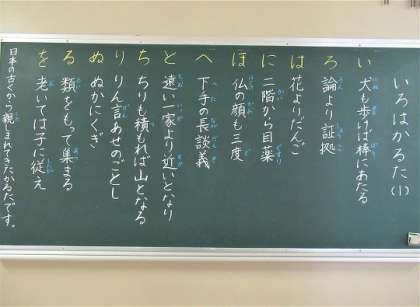 いろはかるた(1)
い 犬も歩けば棒にあたる
ろ 論より証拠
は 花よりだんご
に 二階から目薬
ほ 仏の顔も三度
へ 下手の長談義
と 遠い一家より近いとなり
ち ちりも積れば山となる
り りん言あせのごとし
ぬ ぬかにくぎ
る 類をもって集まる
を 老いては子に従え
日本の古くから親しまれてきたかるたです。